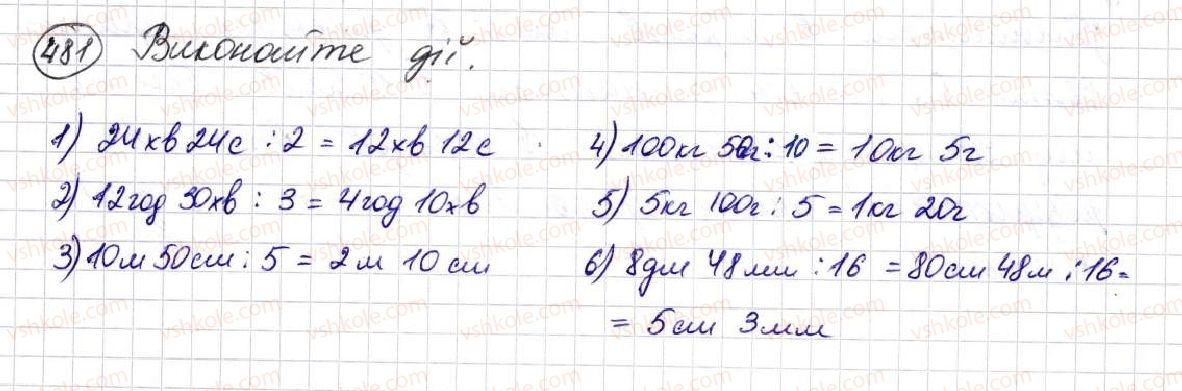 481 Виконайте дії.
1) 24хв 24с : 2 = 12хв 12с
2) 12год 30хв : 3 = 4год 10хв
3) 10м 50см : 5 = 2м 10см
4) 100кг 50г : 10 = 10кг 5г
5) 5кг 100г : 5 = 1кг 20г
6) 8дм 48мм : 16 = 80см 48м : 16 =
= 5см 3мм